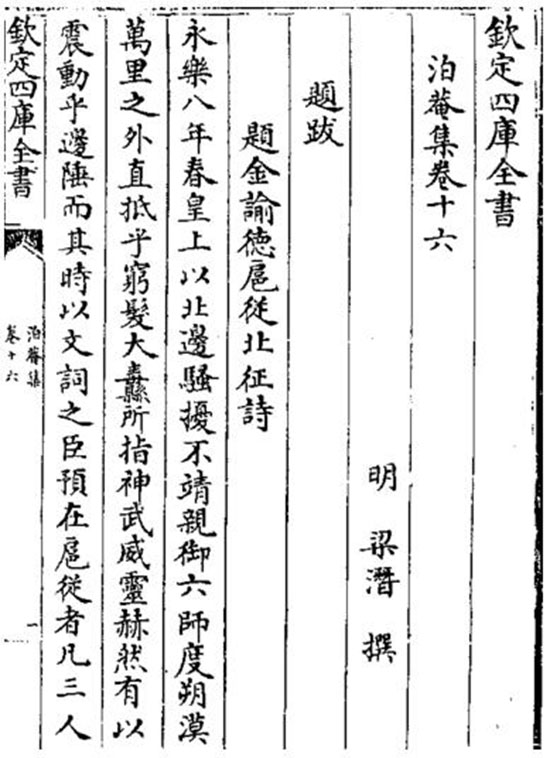 欽定四庫全書
泊菴集卷十六
明 梁潛 撰
題跋
題金諭德扈從北征詩
永樂八年春皇上以北邊騷擾不靖親御六師度朔漠
萬里之外直抵乎窮髮大纛所指神武威靈赫然有以
震動乎邊陲而其時以文詞之臣預在扈從者凡三人
欽定四庫全書
泊菴集
卷十六
一